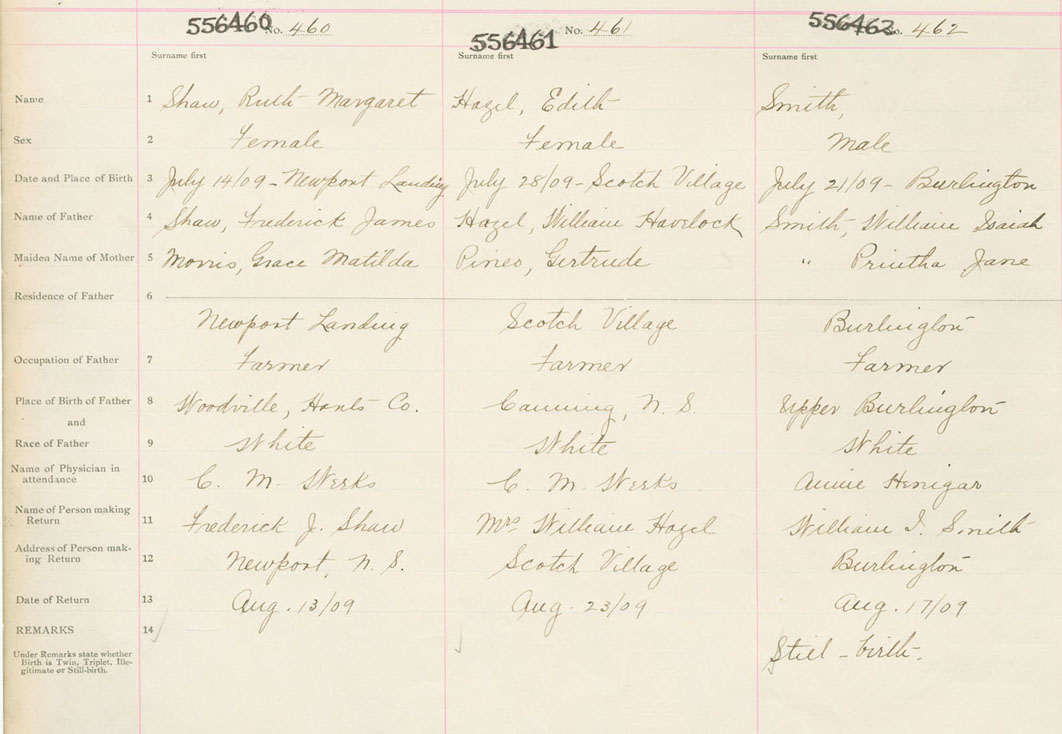 556460 No. 460 556461 No. 461 556462 No. 462
Surname first Surname first Surname first
Name 1 Shaw, Ruth Margaret Hazel, Edith Smith,
Sex 2 Female Female Male
Date and Place of Birth 3 July 14/09 - Newport Landing July 28/09 - Scotch Village July 21/09 - Burlington
Name of Father 4 Shaw, Frederick James Hazel, William Havelock Smith, William Isaiah
Maiden Name of Mother 5 Morris, Grace Matilda Pineo, Gertrude " Jane
Residence of Father 6
Newport Landing Scotch Village Burlington
Occupation of Father 7 Farmer Farmer Farmer
Place of Birth of Father 8 Woodville, Hants Co. Canning, N. S. Upper Burlington
and
Race of Father 9 White White White
Name of Physician in
attendance 10 C. M. C. M. Annie Henigar
Name of Person making
Return 11 Frederick J. Shaw Mrs William Hazel William I. Smith
Address of Person mak-
ing Return 12 Newport, N. S. Scotch Village Burlington
Date of Return 13 Aug. 13/09 Aug. 23/09 Aug. 17/09
REMARKS 14
Under Remarks state whether
Birth is Twin, Triplet, Ille-
gitimate or Still-birth.
Still - birth.